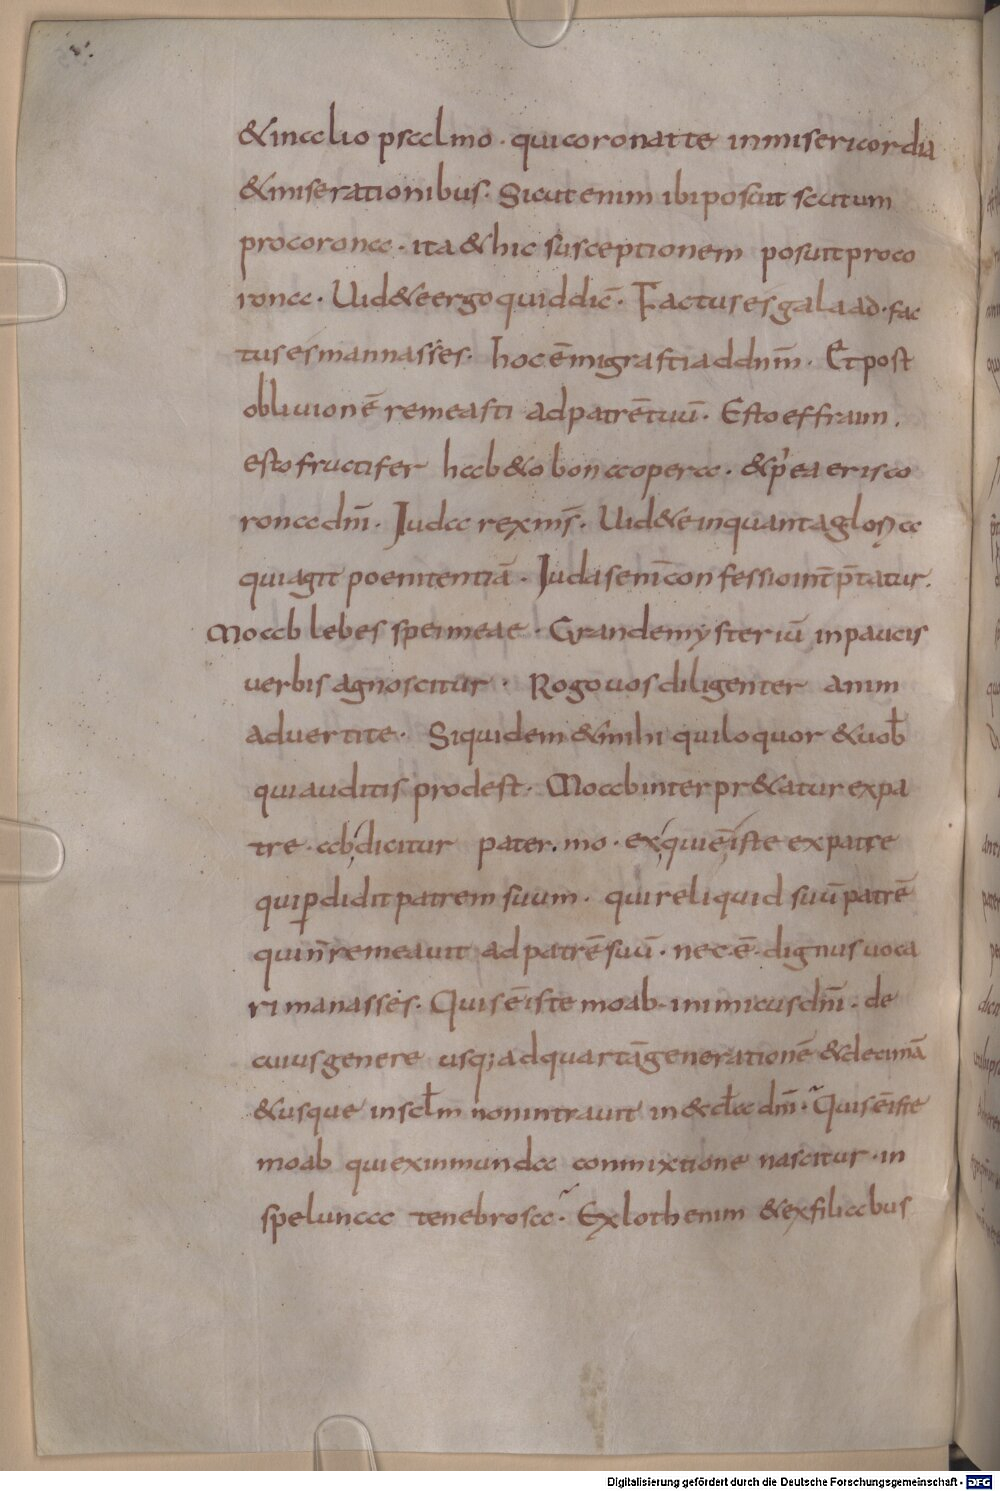 & in alio psalmo · qui coronat te in misericordia
& miserationibus · Sicut enim ibi posuit scutum
pro corona · ita & hic susceptionem posuit pro co
rona · Uid&e ergo quid dic̄ · Factus es galaad · fac
tus es mannasses · hoc ē migrasti ad dnm̄ · Et post
oblivionē remeasti ad patrē tuū · Esto effraim ·
esto fructifer hab&o bona opera · & p̄ ea eris co
rona dnī · Iuda rex ms̄ · Uid&e in quanta gloria
qui agit poenitentiā · Iudas enī confessio int̄p̄tatur ·
Moab lebes spei meae · Grande mysteriū in paucis
verbis agnoscitur · Rogo vos diligenter anim
advertite · Siquidem & mihi qui loquor & vob̄
qui auditis prodest · Moab interpr&atur ex pa
tre · ab dicitur pater · mo · ex · quiē iste ex patre
qui ꝑdidit patrem suum · qui reliquid suū patrē
qui n̄ remeavit ad patrē suū · nec ē dignus voca
ri manasses · Quis ē iste moab · inimicus dnī · de
cuius genere usq; ad quartā generationē & decimā
& usque in scl̄m non intravit in &cl̄a dnī · Quis ē iste
moab qui ex inmunda conmixtione nascitur · in
spelunca tenebrosa · Ex loth enim & ex filiabus
Digitalisierung gefördert durch die Deutsche Forschungsgemeinschaft - DFG